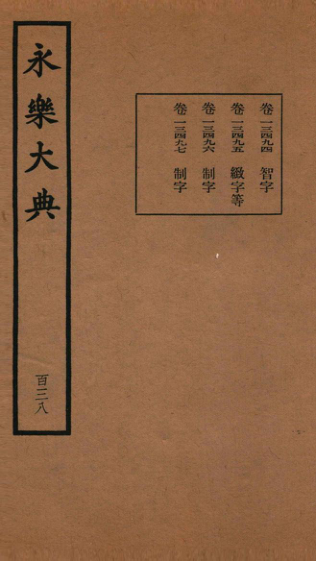 卷一三四九四 智字
卷一三四九五 緻字等
卷一三四九六 制字
卷一三四九七 制字
永樂大典
百三八